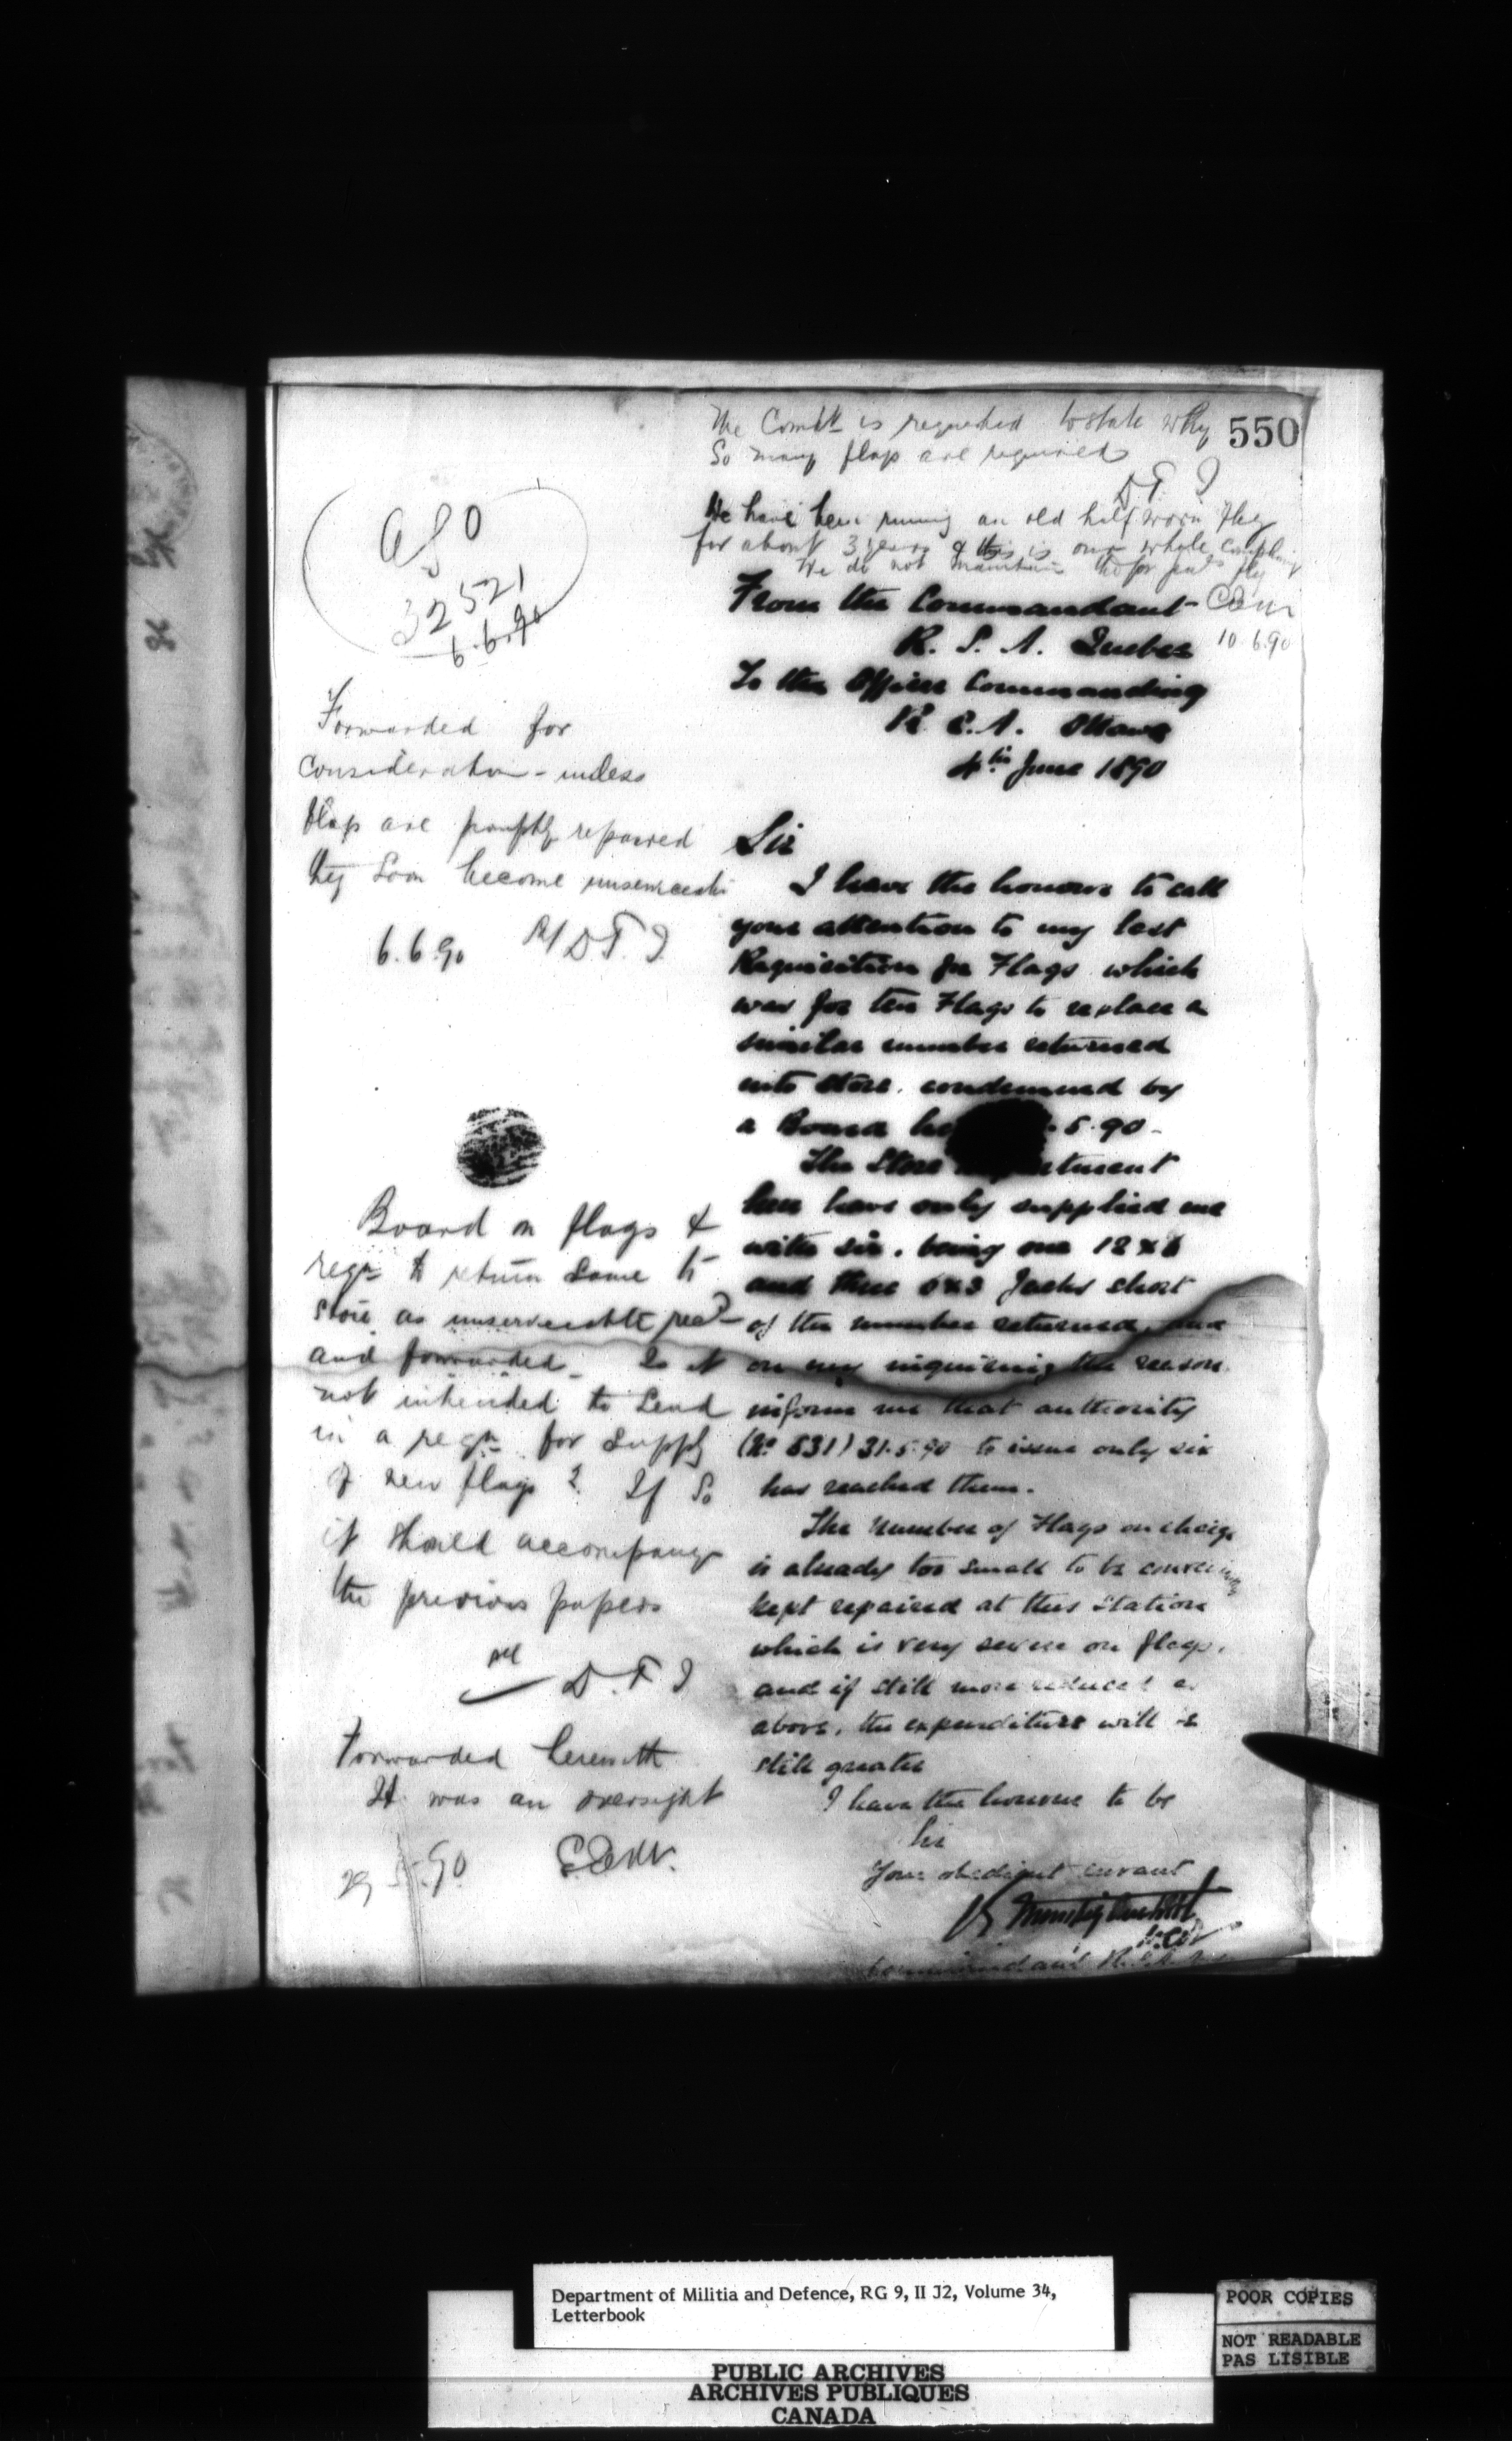 550
The Comdt is requested to state why
So many flags are required
D T I
We have been running an old half worn flag
for about 3 years & this is our whole
We do not
10.6.90
32521
6.6.90
Forwarded for
consideration - unless
flags are promptly repaired
they soon become
6.6.90 D.T.I.
Board on flags &
reqn to return same to
Store as unserviceable recd
and forwarded. Is it
not intended to send
in a reqn for supply
of new flags? If So
it should accompany
the previous papers
D.T.I
Forwarded herewith
It was an oversight
29 90
From the Commandant
R. S. A. Quebec
To the Officer Commanding
R. C. A. Ottawa
4th June 1890
Sir
I have the honour to call
your attention to my last
Requisition for Flags which
was for ten Flags to replace a
similar number returned
into store, condemned by
a Board 5.90-
The Store
here have only supplied me
with six, being one 12 x 6
and three 6x3 Jacks short
of the number returned, and
on my inquiring the reason
inform me that authority
(No 531) 31.5.90 to issue only six
has reached them.
The Number of Flags on charge
is already too small to be
kept repaired at this Station
which is very severe on flags,
and if still more reduced as
above, the expenditure will be
still greater
I have the honour to be
Sir
Your obedient servant
Commandant
Department of Militia and Defence, RG 9, II J2, Volume 34,
Letterbook
PUBLIC ARCHIVES
ARCHIVES PUBLIQUES
CANADA
POOR COPIES
NOT READABLE
PAS LISIBLE